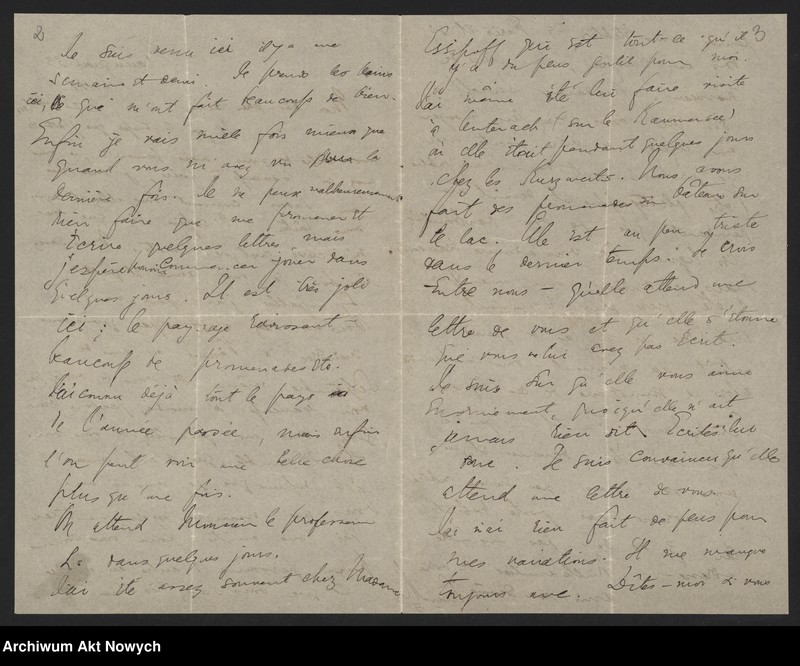 2
Je suis venu ici il y a une
semaine et demi. Je prends les bains
ici, ce qui m'ont fait beaucoup de bien.
Enfin je vais mille fois mieux que
quand vous m'avez vu la
dernière fois. Je ne peux malheureusement
rien faire que me promener et
écrire quelques lettres, mais
j'espère pouvoir commencer jouer dans
quelques jours. Il est très joli
ici; le paysage ravissant
beaucoup de promenades etc.
J'ai connu déjà tout le pays
de l'année passée, mais enfin
l'on peut voir une belle chose
plus qu'une fois.
On attend Monsieur le professeur
L. dans quelques jours.
J'ai été assez souvent chez Madame
3
Essipoff qui est tout-ce qu'il
y a du plus gentil pour moi.
J'ai même été lui faire visite
à (sur le Kammersee)
où elle était pendant quelques jours
chez les. Nous avons
fait des promenades en bateau sur
le lac. Elle est un peu triste
dans le dernier temps. Je crois
- Entre nous - qu'elle attend une
lettre de vous et qu'elle s'étonne
que vous ne lui avez pas écrit.
Je suis sur qu'elle vous aime
énormement, quoiqu'elle n'ait
jamais rien dit. Ecrites lui
donc. Je suis convaincu qu'elle
attend une lettre de vous.
Je n'ai rien fait de plus pour
mes variations. Il me manque
toujours une. Dîtes-moi si vous
Archiwum Akt Nowych